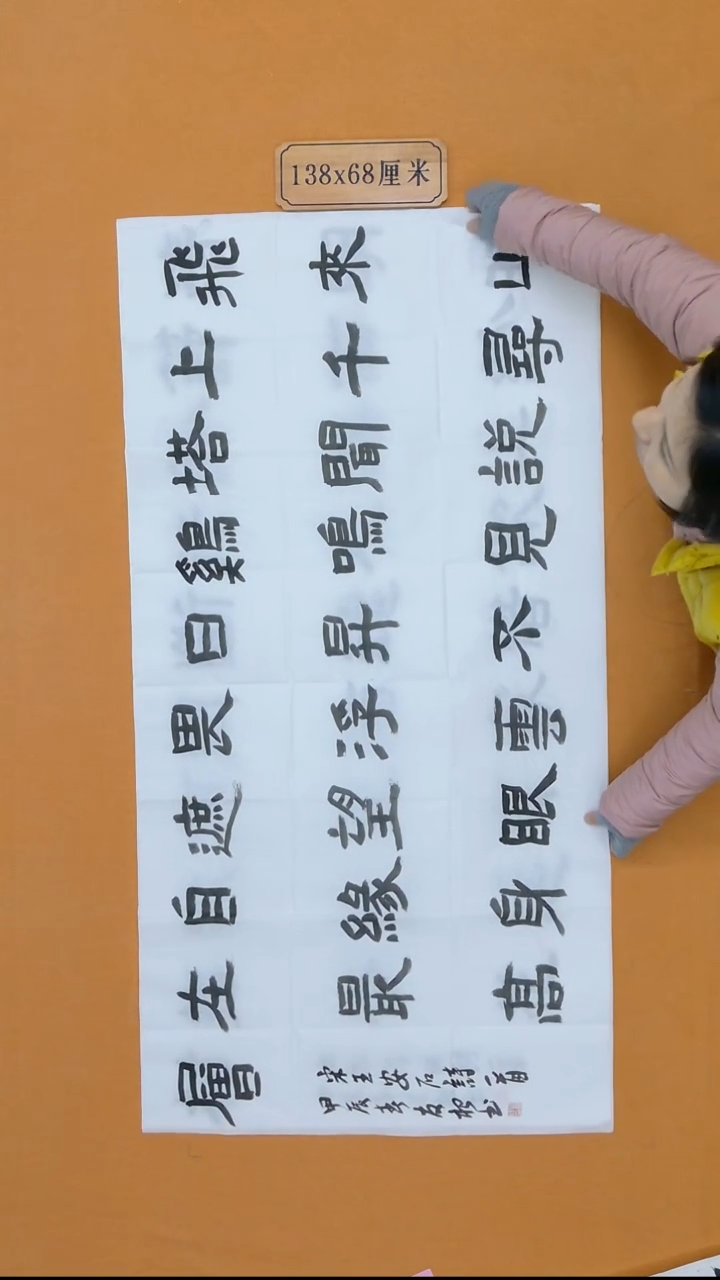 138x68厘米
飛來山
上千尋
塔聞說
鷄鳴見
日昇不
畏浮雲
遮望眼
自緣身
在最高
層
宋王安石詩一首
甲辰春友松书